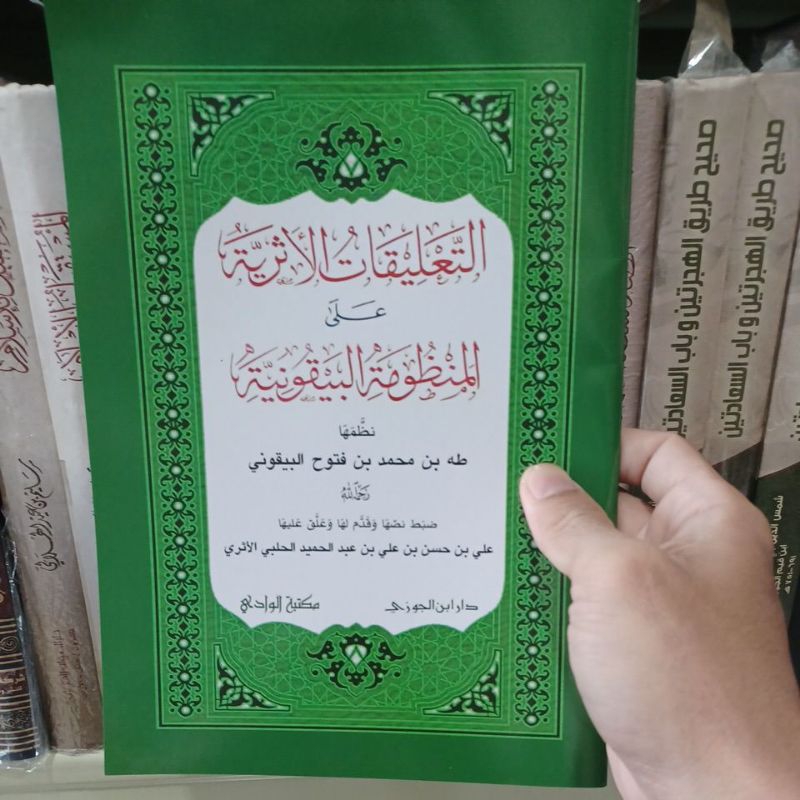 التَّعْلِيقَاتُ الأَثَرِيَّةُ
عَلَى
المَنْظُومَةِ البَيْقُونِيَّةِ
نظَّمَهَا
طه بن محمد بن فتوح البيقوني
رَحِمَهُ اللهُ
ضبَط نصّهَا وَقدَّم لهَا وَعَلّق عَليهَا
علي بن حسن بن علي بن عبد الحميد الحلبي الأثري
دار ابن الجوزي
مكتبة الوادي
صحيح طريق الهجرتين وباب السعادتين
صحيح طريق الهجرتين وباب السعادتين